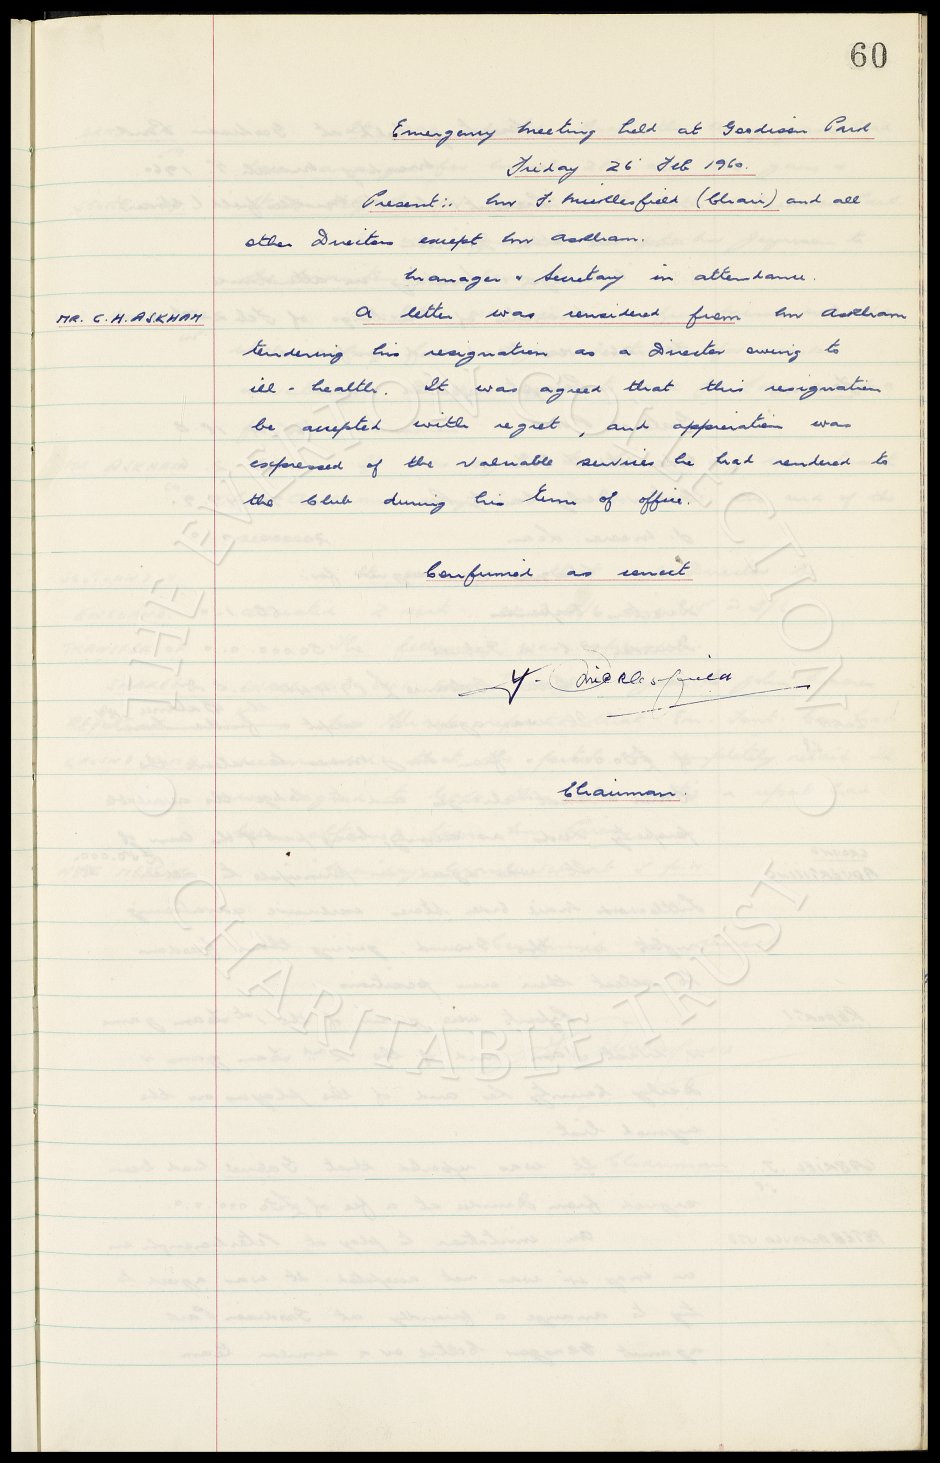 60
Emergency Meeting held at Goodison Park
Friday 26 Feb 1960.
Present:- Mr F. Micklesfield (Chair) and all
other Directors except Mr Askham.
Manager & Secretary in attendance.
MR. C. H. ASKHAM
A letter was considered from Mr Askham
tendering his resignation as a Director owing to
ill-health. It was agreed that this resignation
be accepted with regret, and appreciation was
expressed of the valuable services he had rendered to
the Club during his term of office.
Confirmed as correct
F. Micklesfield
Chairman.
THE EVERTON COLLECTION
CHARITABLE TRUST